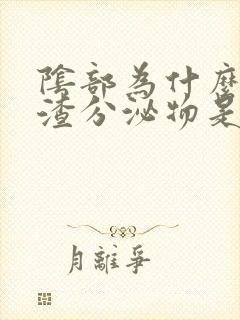 陰部為什麼
渣分泌物是
月離爭